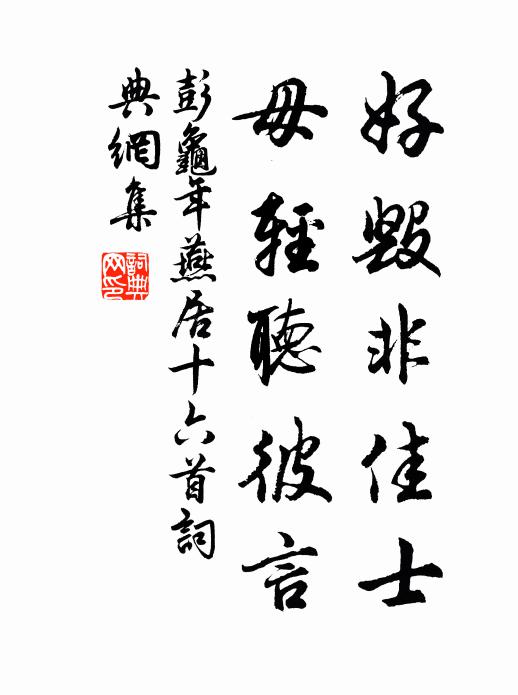 好毀非佳士
毋輕聽彼言
彭龜年燕居十六首詞
典網集
詞典网印